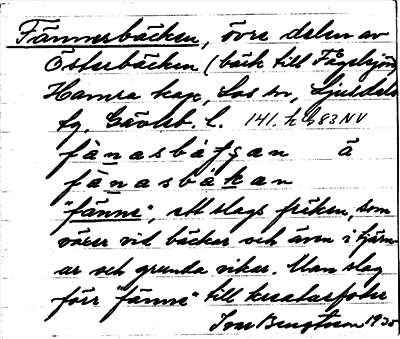 Fännesbäcken, övre delen av
Österbäcken (bäck till Fågelsjön)
Hamra kap, Los sn, Ljusdals
tg, Gävleb. l. 141. h h 83 NV
fänasbäfgan å
fänasbäkan
"fänne", ett slags fräken, som
växer vid bäckar och även i tjärn-
ar och grunda vikar. Man slog
förr "fänne" till kreatursfoder
Bengtsson 1935